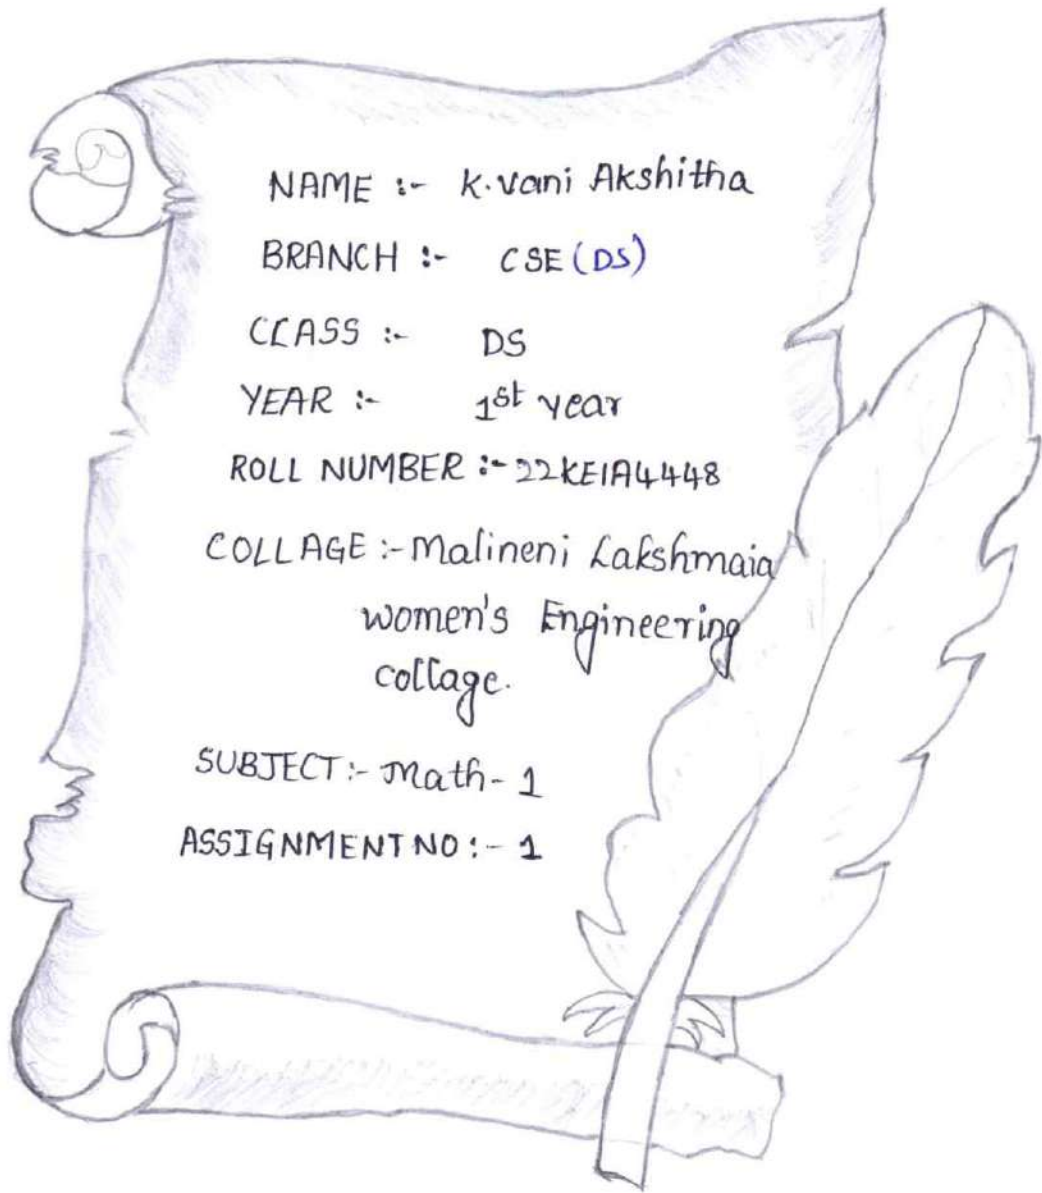 NAME :- K.Vani Akshitha
BRANCH :- CSE (DS)
CLASS :- DS
YEAR :- 1st year
ROLL NUMBER :- 22KE1A4448
COLLAGE :- Malineni Lakshmaia
women's Engineering
collage.
SUBJECT :- Math - 1
ASSIGNMENT NO :- 1